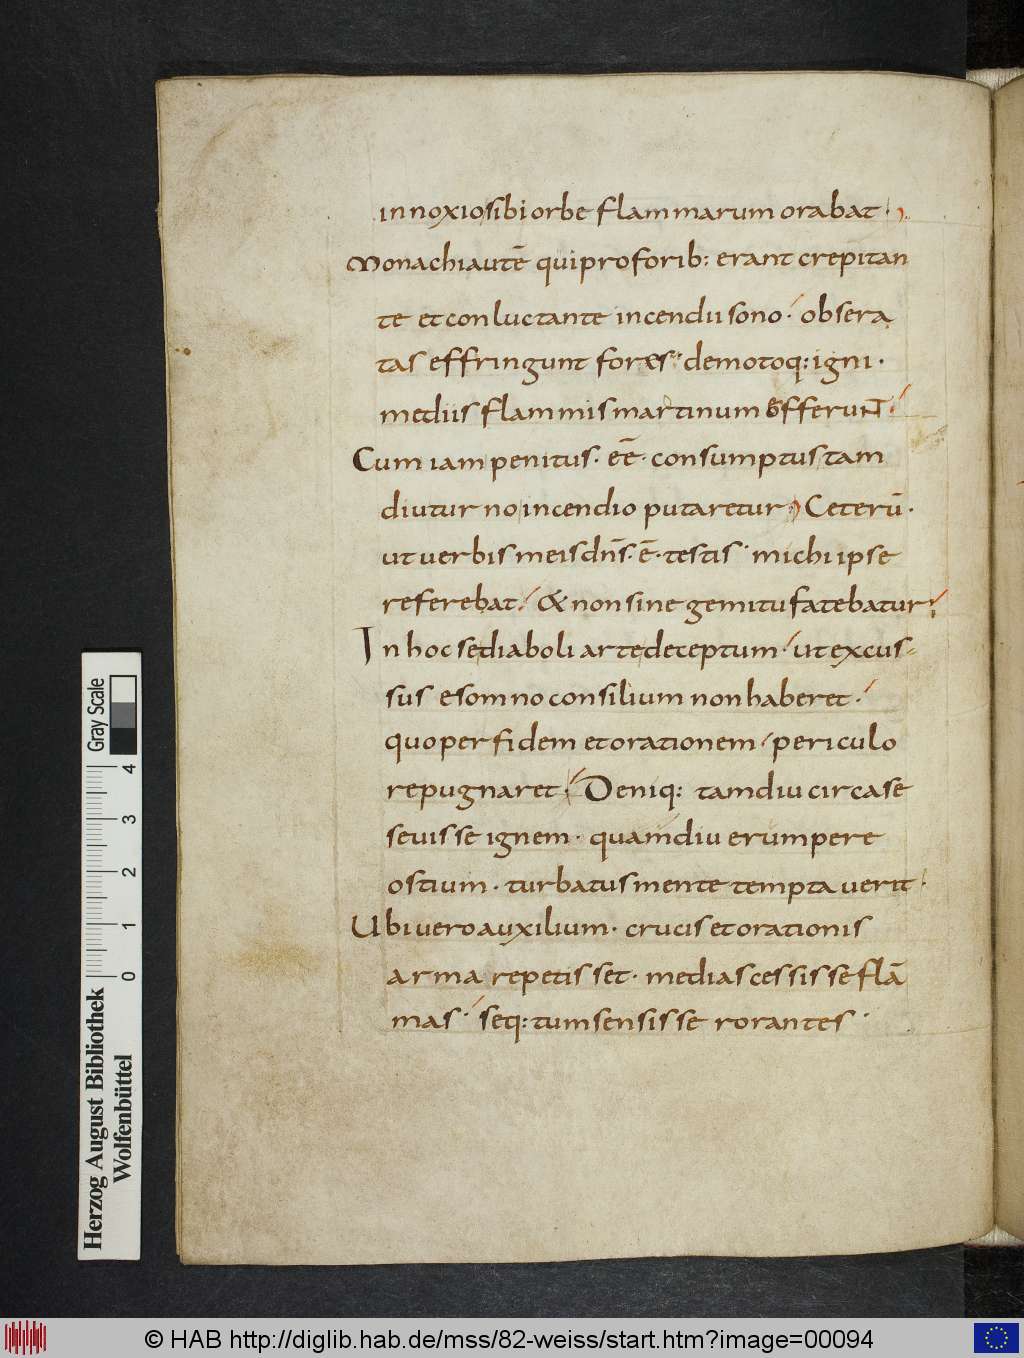 innoxio sibi orbe flammarum orabat·
Monachi autē qui pro forib: erant crepitan
te et conluctante incendii sono· obsera
tas effringunt fores· demotoq: igni·
mediis flammis martinum efferunt·
Cum iam penitus· eē· consumptus tam
diuturno incendio putaretur· Ceterū·
ut uerbis meis dn̄s· ē· testis· michi ipse
referebat· & non sine gemitu fatebatur·
In hoc se diaboli arte deceptum· ut excus-
sus e somno consilium non haberet·
quo per fidem et orationem· periculo
repugnaret· Deniq: tamdiu circa se
seuisse ignem· quamdiu erumpere
ostium· turbatus mente temptauerit·
Ubi uero auxilium· crucis et orationis
arma repetisset· medias cessisse flā
mas· seq: tum sensisse rorantes·
Herzog August Bibliothek
Wolfenbüttel
Gray Scale
0 1 2 3 4
© HAB http://diglib.hab.de/mss/82-weiss/start.htm?image=00094